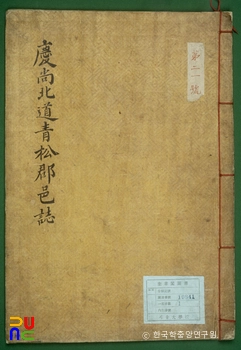 慶尚北道青松郡邑誌
第二一號
PUNE
© 한국학중앙연구원